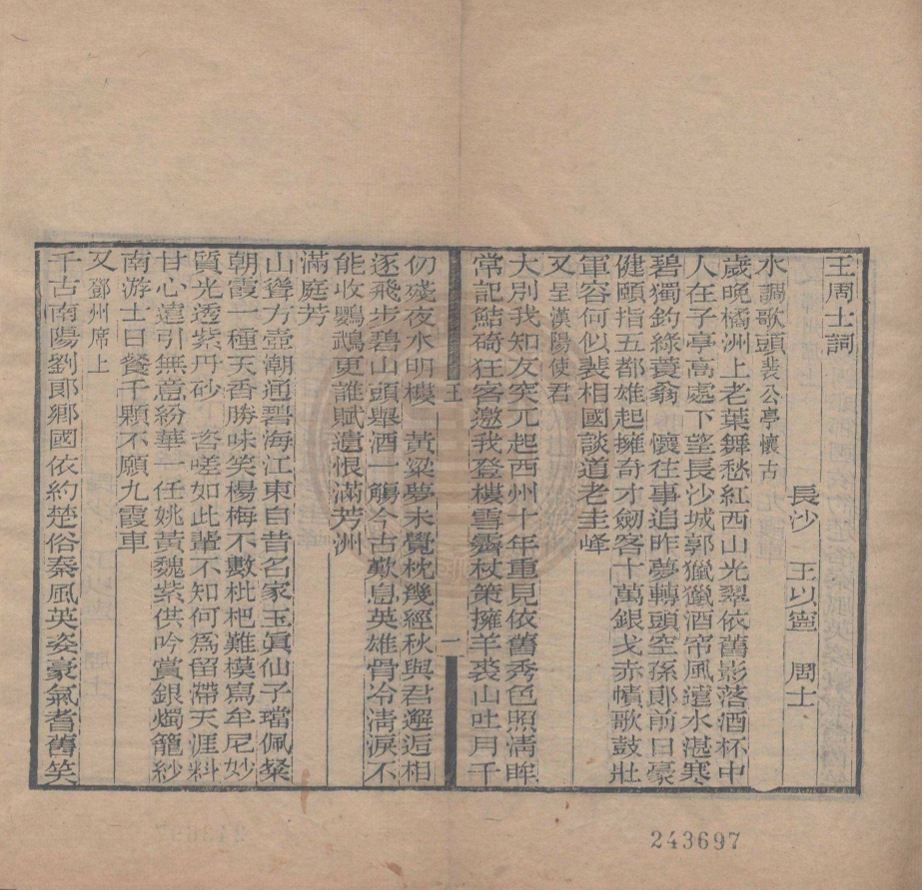 王周士詞
長沙　王以寧　周士
水調歌頭裴公亭懷古
歲晚橘洲上老葉舞愁紅西山光翠依舊影落酒杯中
人在子亭高處下望長沙城郭獵獵酒帘風遠水湛寒
碧獨釣綠蓑翁　懷往事追昨夢轉頭空孫郎前日豪
健頤指五都雄起擁奇才劒客十萬銀戈赤幘歌鼓壯
軍容何似裴相國談道老圭峰
又呈漢陽使君
大別我知友突兀起西州十年重見依舊秀色照淸眸
常記鮚碕狂客邀我登樓雪霽杖策擁羊裘山吐月千
仞殘夜水明樓　黃粱夢未覺枕幾經秋與君邂逅相
逐飛步碧山頭舉酒一觴今古歎息英雄骨冷淸淚不
能收鸚鵡更誰賦遺恨滿芳洲
滿庭芳
山聳方壺潮通碧海江東自昔名家玉眞仙子璫佩粲
朝霞一種天香勝味笑楊梅不數枇杷難模寫牟尼妙
質光透紫丹砂　咨嗟如此輩不知何爲留滯天涯料
甘心遠引無意紛華一任姚黃魏紫供吟賞銀燭籠紗
南游士日餐千顆不願九霞車
又鄧州席上
千古南陽劉郎鄉國依約楚俗秦風英姿豪氣耆舊笑
王
一
243697